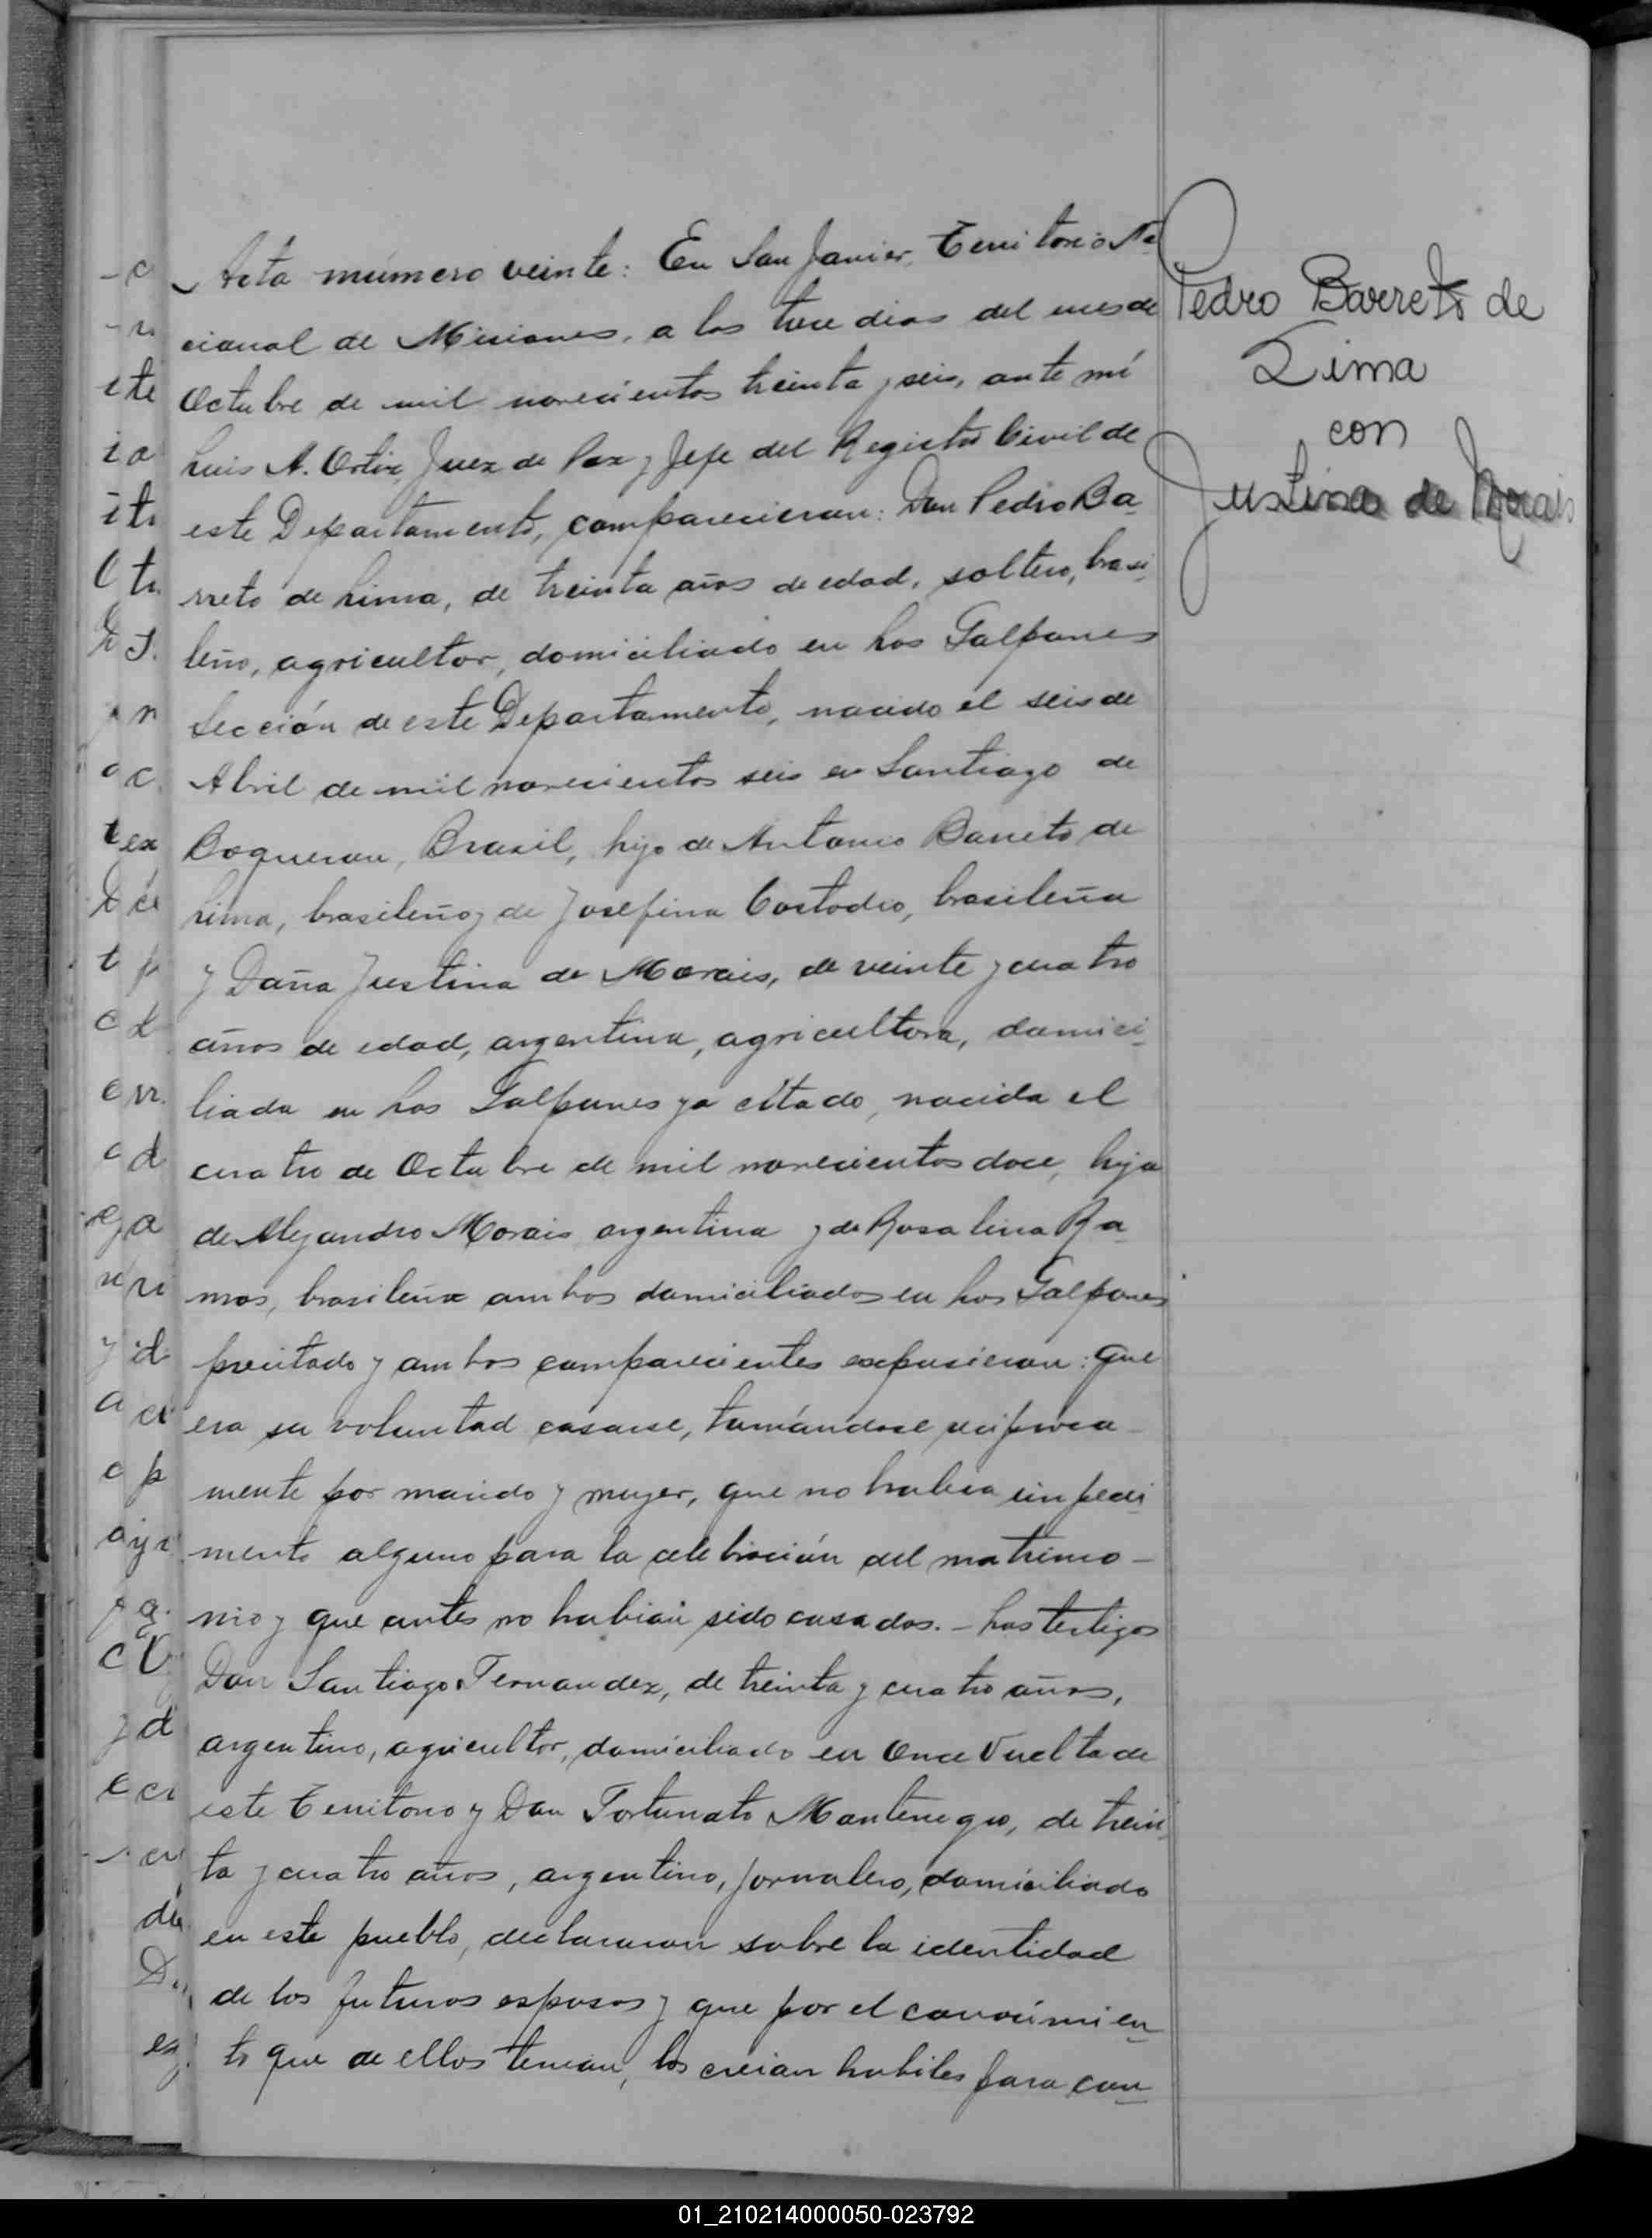 Acta número veinte: En San Javier, Territorio Na
cional de Misiones, a los trece dias del mes de
Octubre de mil novecientos treinta y seis, ante mí
Luis A. Ortiz, Juez de Paz y Jefe del Registro Civil de
este Departamento, comparecieron: Don Pedro Ba
rreto de Lima, de treinta años de edad, soltero, brasi
leño, agricultor, domiciliado en Los Galpones
Sección de este Departamento, nacido el seis de
Abril de mil novecientos seis en Santiago de
Boqueron, Brasil, hijo de Antonio Barreto de
Lima, brasileño y de Josefina Costodio, brasileña
y Doña Justina de Morais, de veinte y cuatro
años de edad, argentina, agricultora, domici
liada en Los Galpones ya citado, nacida el
cuatro de Octubre de mil novecientos doce, hija
de Alejandro Morais argentina y de Rosalina Ra
mos, brasileña ambos domiciliados en Los Galpones
precitado y ambos comparecientes expusieron: que
era su voluntad casarse, tomándose reciproca
mente por marido y mujer, que no habia impedi
mento alguno para la celebración del matrimo-
nio y que antes no habian sido casados. - Los testigos
Don Santiago Fernandez, de treinta y cuatro años,
argentino, agricultor, domiciliado en Once Vuelta de
este Territorio y Don Fortunato Montenegro, de trein
ta y cuatro años, argentino, jornalero, domiciliado
en este pueblo, declararon sobre la identidad
de los futuros esposos y que por el conocimien
to que de ellos tenian, los creian habiles para con
Pedro Barreto de
Lima
con
Justina de Morais
01_210214000050-023792